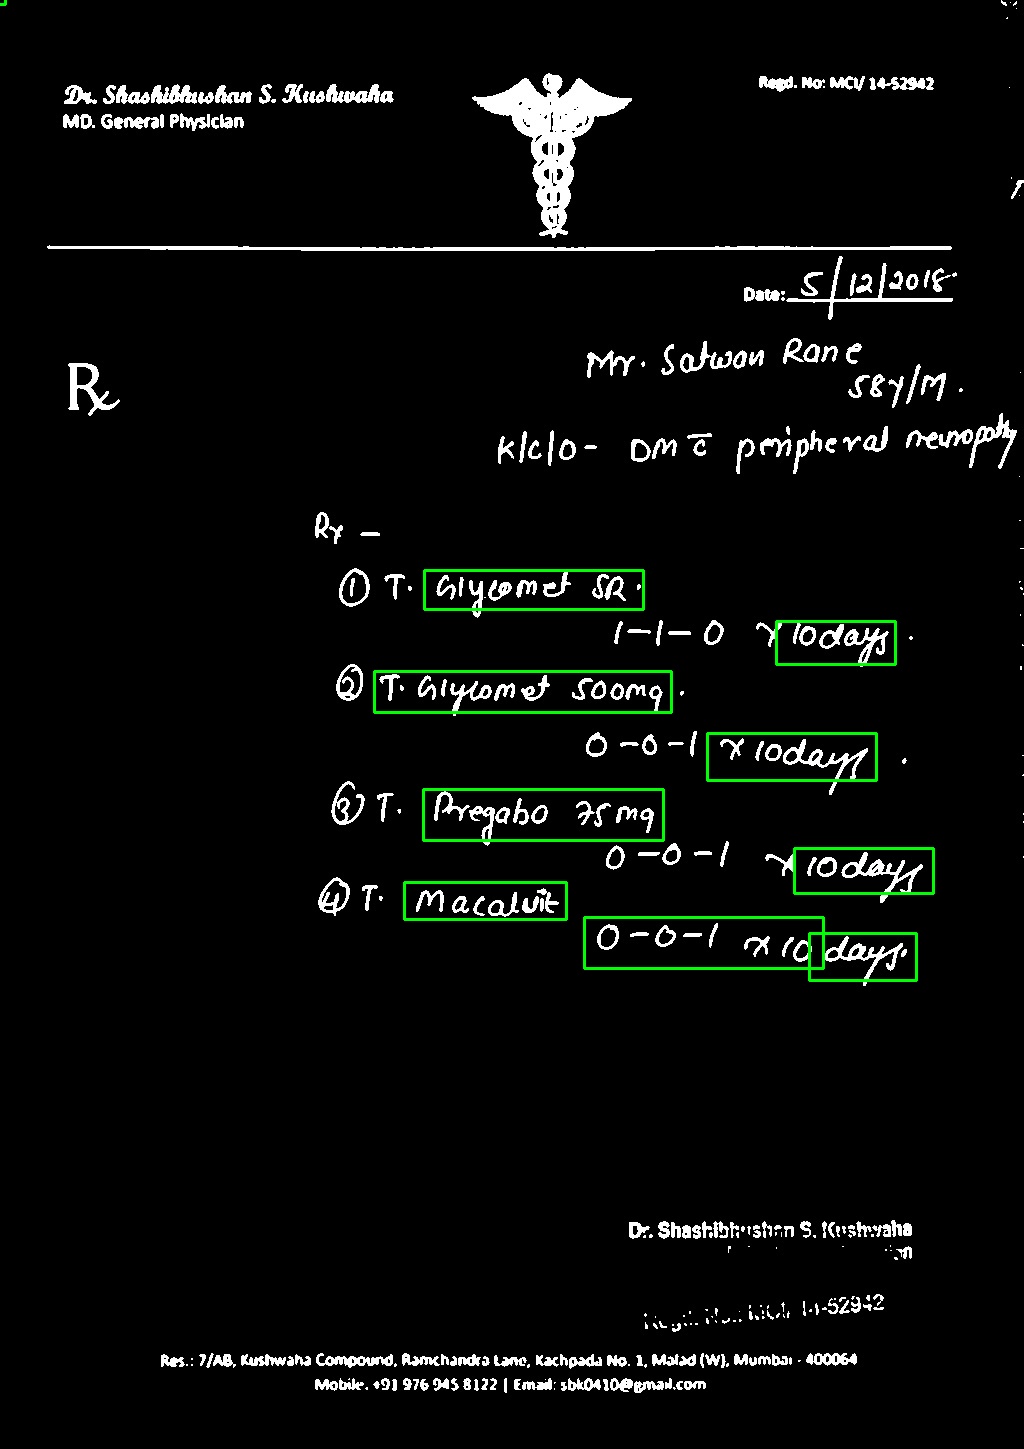 Dr. Shashibhushan S. Kushwaha
MD. General Physician
Regd. No: MCI/ 14-52942
Date: 5/12/2018
Rx
Mr. Satwan Rane
58y/M.
K/c/o - DM c̄ peripheral neuropathy
Rx -
① T. Glycomet SR.
1-1-0 x 10days.
② T. Glycomet 500mg.
0-0-1 x 10days.
③ T. Pregabo 75mg
0-0-1 x 10days
④ T. Macalvit
0-0-1 x 10 days.
Dr. Shashibhushan S. Kushwaha
Regd. No.: MCI/ 14-52942
Res.: 7/AB, Kushwaha Compound, Ramchandra Lane, Kachpada No. 1, Malad (W), Mumbai - 400064
Mobile. +91 976 945 8122 | Email: sbk0410@gmail.com